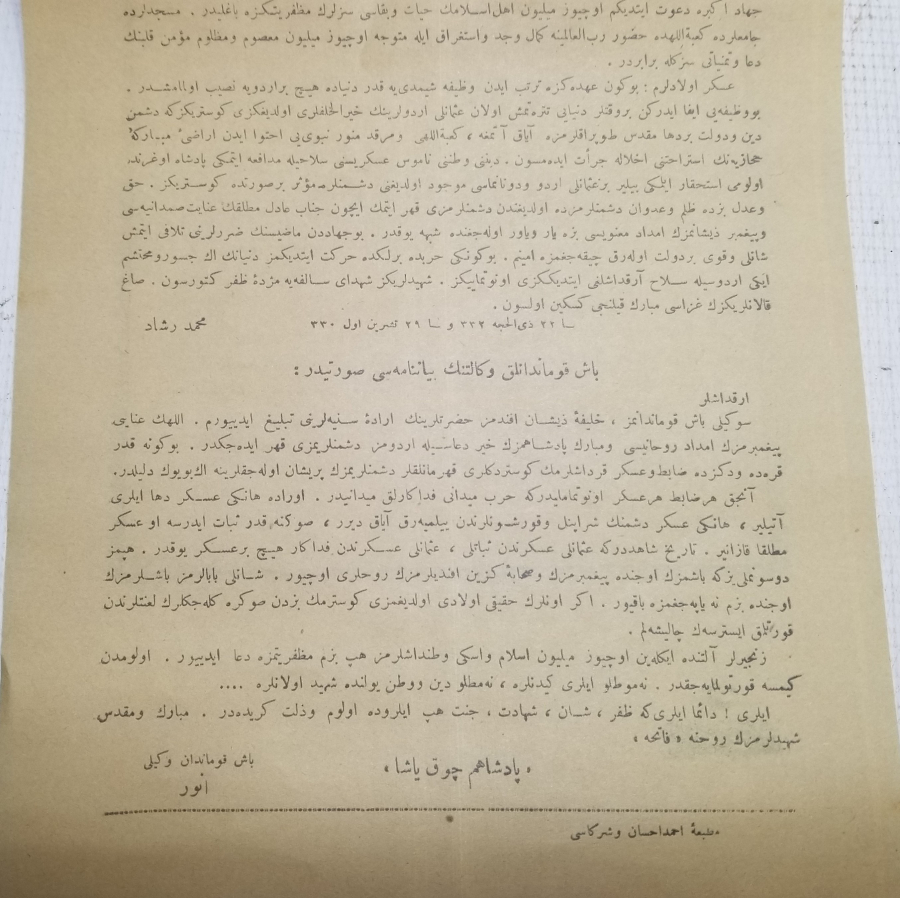 جهاد اكبره دعوت ایتدیكم اوچیوز میلیون اهل اسلامك حیات وبقاسی سزلرك مظفریتكزه باغلیدر . مسجدلرده
جامعلرده كعبة اللهده حضور رب العالمینه كمال وجد واستغراق ایله متوجه اوچیوز میلیون معصوم ومظلوم مؤمن قلبنك
دعا وتمنیاتی سزكله برابردر .
عسكر اولادلرم : بوكون عهده كزه ترتب ایدن وظیفه شیمدی یه قدر دنیاده هیچ براردویه نصیب اولمامشدر .
بووظیفه یی ایفا ایدركن بروقتلر دنیایی تتره تمش اولان عثمانلی اردولرینك خیر الخلفلری اولدیغكزی كوستریكزكه دشمن
دین ودولت بردها مقدس طوپراقلرمزه آیاق آتمغه ، كعبة اللهی ومرقد منور نبوی یی احتوا ایدن اراضیٔ مباركهٔ
حجازیه نك استراحتنی اخلاله جرأت ایده مسون . دیننی وطننی ناموس عسكریسنی سلاحیله مدافعه ایتمكی پادشاه اوغرنده
اولومی استحقار ایتمكی بیلیر برعثمانلی اردو ودونانماسی موجود اولدیغنی دشمنلره مؤثر برصورتده كوستریكز . حق
وعدل بزده ظلم وعدوان دشمنلرمزده اولدیغندن دشمنلرمزی قهر ایتمك ایچون جناب عادل مطلقك عنایت صمدانیه سی
وپیغمبر ذیشانمزك امداد معنویسی بزه یار ویاور اوله جغنده شبهه یوقدر . بوجهاددن ماضیسنك ضررلرینی تلافی ایتمش
شانلی وقوی بردولت اوله رق چیقه جغمزه امینم . بوكونكی حربده برلكده حركت ایتدیكمز دنیانك اك جسور ومحتشم
ایكی اردوسیله سلاح آرقداشلغی ایتدیككزی اونوتمایكز . شهیدلریكز شهدای سالفه یه مژدهٔ ظفر كتورسون . صاغ
قالانلریكزك غزاسی مبارك قیلنجی كسكین اولسون .
٢٢ ذی الحجه ٣٣٢ و ٢٩ تشرین اول ٣٣٠
محمد رشاد
باش قوماندانلق وكالتنك بیاننامه سی صورتیدر :
ارقداشلر
سوكیلی باش قوماندانمز ، خلیفهٔ ذیشان افندمز حضرتلرینك ارادهٔ سنیه لرینی تبلیغ ایدییورم . اللهك عنایتی
پیغمبرمزك امداد روحانیسی ومبارك پادشاهمزك خیر دعاسیله اردومز دشمنلریمزی قهر ایده جكدر . بوكونه قدر
قره ده ودكزده ضابط وعسكر قرداشلرمك كوستردكلری قهرمانلقلر دشمنلریمزك پریشان اوله جقلرینه اك بویوك دلیلدر.
آنجق هرضابط هرعسكر اونوتمامالیدركه حرب میدانی فداكارلق میدانیدر . اوراده هانكی عسكر دها ایلری
آتیلیر ، هانكی عسكر دشمنك شراپنل وقورشونلرندن ییلمیه رق آیاق دیرر ، صوكنه قدر ثبات ایدرسه او عسكر
مطلقا قازانیر . تاریخ شاهددركه عثمانلی عسكرندن ثباتلی ، عثمانلی عسكرندن فداكار هیچ برعسكر یوقدر . هپمز
دوشونملی یزكه باشمزك اوجنده پیغمبرمزك وصحابهٔ كزین افندیلرمزك روحلری اوچیور . شانلی بابالرمز باشلرمزك
اوجنده بزم نه یاپه جغمزه باقیور . اكر اونلرك حقیقی اولادی اولدیغمزی كوسترمك بزدن صوكره كله جكلرك لعنتلرندن
قورتلمق ایسترسه ك چالیشه لم .
زنجیرلر آلتنده ایكله ین اوچیوز میلیون اسلام واسكی وطنداشلرمز هپ بزم مظفریتمزه دعا ایدییور . اولومدن
كیمسه قورتولمایه جقدر . نه موطلو ایلری كیدنلره ، نه مطلو دین ووطن یولنده شهید اولانلره ....
ایلری ! دائما ایلری كه ظفر ، شان ، شهادت ، جنت هپ ایلروده اولوم وذلت كریده در . مبارك ومقدس
شهیدلرمزك روحنه « فاتحه »
« پادشاهم چوق یاشا »
باش قوماندان وكیلی
انور
مطبعهٔ احمد احسان وشركاسی